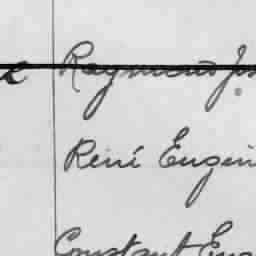 Raymond Jos
René Eugen
Constant Eug